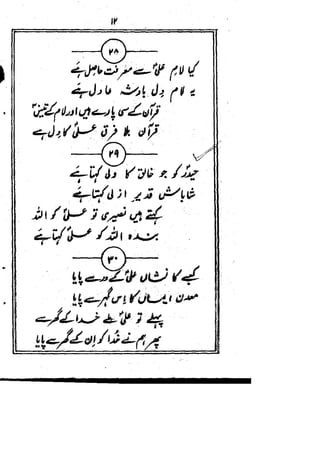 ۱۲
۲۸
کیا لام علیؑ سے معرفت حاصل ہے
یہ لام دل بادشہ عادل ہے
قرآن کے سی پارے ہیں اور لام کے تیسؔ
قرآن بلا فرق علیؑ کا دل ہے
۲۹
حیدرؑ کو جو خالق کا ولی کہتا ہے
شاباش قدیر ازلی کہتا ہے
کہتے ہیں نصیری تو علیؑ کو اللہ
بندہ اللہ کو علیؑ کہتا ہے
۳۰
کعبے کا نشاں علیؑ کے در سے پایا
معدن ایماں کا اس گہر سے پایا
پہلے تو علیؑ ملے خدا کے گھر سے
پھر ہم نے خدا کو ان کے گھر سے پایا